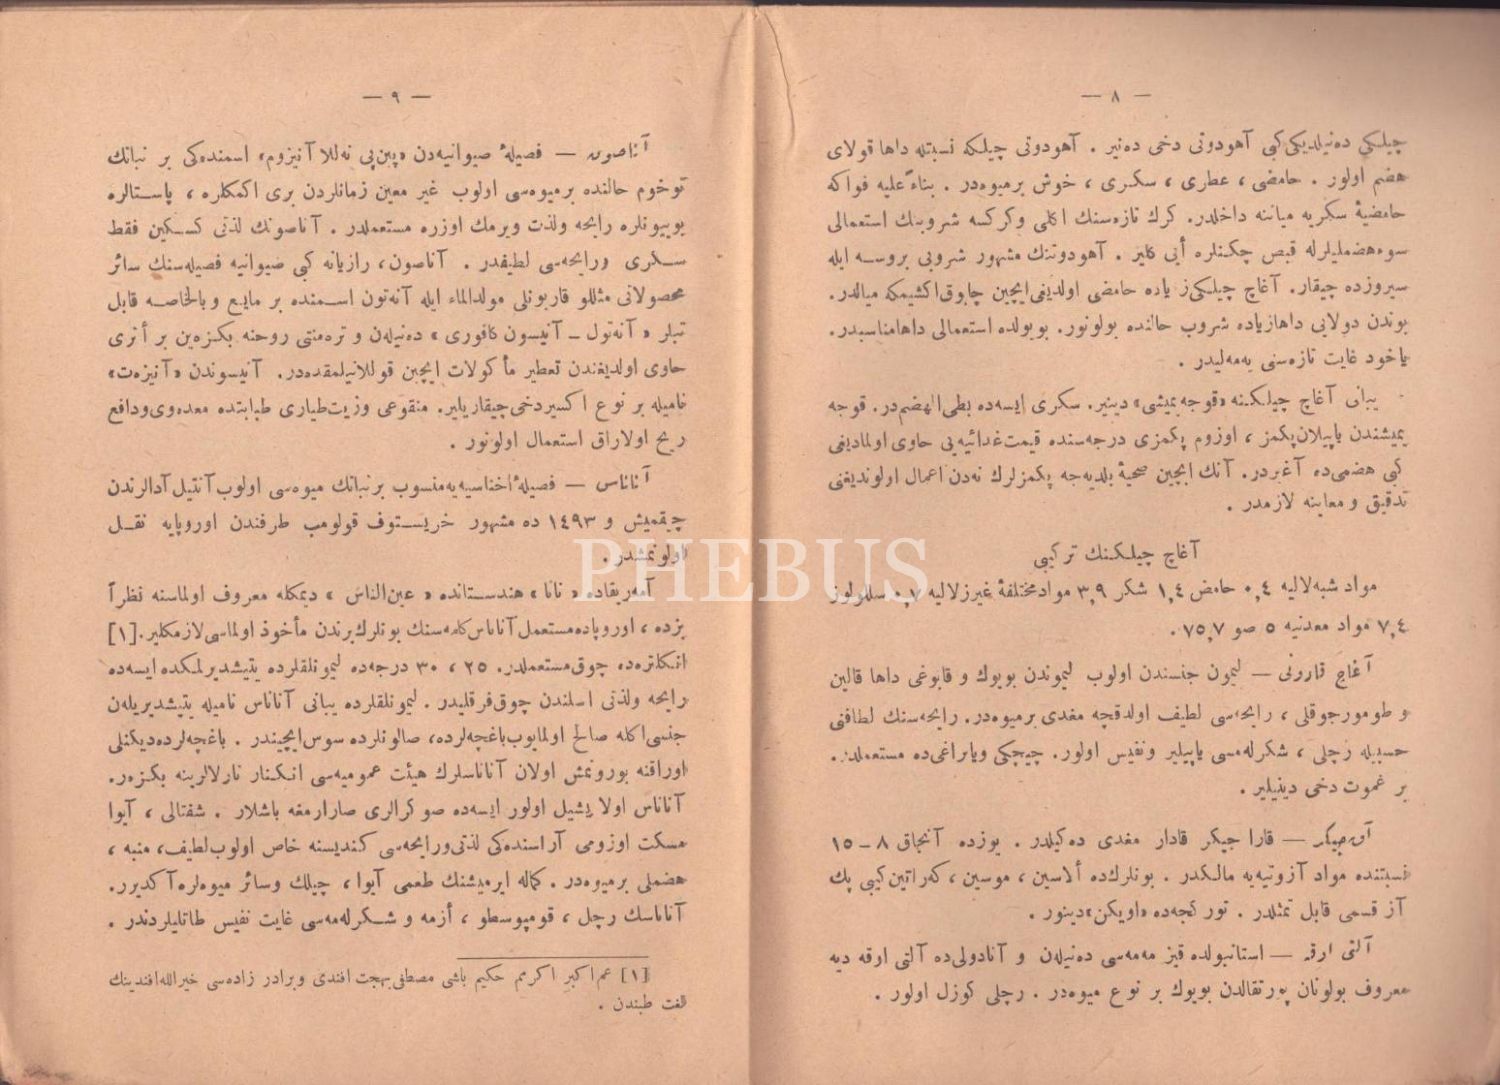 — ٨ —
چیلکی ده‌نیلدیکی کبی آهودوتی دخی ده‌نیر . آهودوتی چیلکه نسبتله داها قولای
هضم اولور . حامضی ، عطاری ، سکری ، خوش برمیوه‌در . بناءً علیه فواکه
حامضیهٔ سکریه میاننه داخلدر. کرك تازه‌سنك اکلی وکرکسه شروبنك استعمالی
سوءهضملیلرله قبض چکنلره أیی کلیر . آهودوتنك مشهور شروبی بروسه ایله
سیروزده چیقار. آغاچ چیلکی زیاده حامضی اولدیغی ایچین چابوق اکشیمکه میالدر.
بوندن دولایی داهازیاده شروب حالنده بولونور. بویولده استعمالی داهامناسبدر.
یاخود غایت تازه‌سنی یه‌ملیدر .
یبانی آغاچ چیلکنه «قوجه‌یمیشی» دینیر. سکری ایسه‌ده بطی‌الهضم‌در. قوجه
یمیشندن یاپیلان پکمز ، اوزوم پکمزی درجه‌سنده قیمت‌غدائیه‌یی حاوی اولمادیغی
کبی هضمی‌ده آغیردر. آنك ایچین صحیهٔ بلدیه‌جه پکمزلرك نه‌دن اعمال اولوندیغنی
تدقیق و معاینه لازمدر .
آغاچ چیلکنك ترکیبی
مواد شبه‌لالیه ٠,٤ حامض ١,٤ شکر ٣,٩ موادمختلفهٔ غیرزلالیه ٠,٧ سللولوز
٧,٤ مواد معدنیه ٥ صو ٧٥,٧.
آغاج قاونی — لیمون جنسندن اولوب لیموندن بویوك و قابوغی داها قالین
و طومورجوقلی ، رایحه‌سی لطیف اولدقجه مغدی برمیوه‌در. رایحه‌سنك لطافتی
حسبیله رچلی ، شکرله‌مسی یاپیلیر ونفیس اولور. چیچکی ویاپراغی‌ده مستعملدر.
بر غموت دخی دینیلیر .
آق جیگر — قارا جیکر قادار مغدی ده‌کیلدر. یوزده آنجاق ٨-١٥
نسبتنده مواد آزوتیه‌یه مالکدر. بونلرك‌ده ألاسین ، موسین ، که‌راتین کیبی پك
آز قسمی قابل تمثلدر . تورکجه‌ده «اویکن» دینور .
آلتی ارقه — استانبولده قیز مه‌مه‌سی ده‌نیله‌ن و آنادولی‌ده آلتی ارقه دیه
معروف بولونان پورتقالدن بویوك بر نوع میوه‌در . رچلی کوزل اولور .
— ٩ —
آناصون — فصیلهٔ صیوانیه‌دن «پین‌پی نه‌للا آنیزوم» اسمنده‌کی بر نباتك
توخوم حالنده برمیوه‌سی اولوب غیر معین زمانلردن بری اکمکلره ، پاستالره
بوییونلره رایحه ولذت ویرمك اوزره مستعملدر . آناصونك لذتی کسکین فقط
سکری ورایحه‌سی لطیفدر . آناصون، رازیانه کبی صیوانیه فصیله‌سنك سائر
محصولاتی مثللو قاربونلی مولدالماء ایله آنه‌تون اسمنده بر مایع و بالخاصه قابل
تبلر « آنه‌تول – آنیسون کافوری » ده‌نیله‌ن و تره‌منتی روحنه بکزه‌ین بر أثری
حاوی اولدیغندن تعطیر مأکولات ایچین قوللانیلمقده‌در. آنیسوندن «آنیزه‌ت»
نامیله بر نوع اکسیردخی چیقاریلیر. منقوعی وزیت‌طیاری طبابتده معده‌وی‌ودافع
ریح اولاراق استعمال اولونور .
آناناس — فصیلهٔ اخناسیه‌یه‌منسوب برنباتك میوه‌سی اولوب آنتیل آدالرندن
چیقمیش و ١٤٩٣ ده مشهور خریستوف قولومب طرفندن اوروپایه نقل
اولونمشدر .
آمه‌ریقاده « نانا » هندستانده « عین‌الناس » دیمکله معروف اولماسنه نظراً
بزده ، اوروپاده‌مستعمل آناناس کله‌سنك بونلرك برندن مأخوذ اولماسی لازمکلیر.[١]
انکلتره‌ده چوق‌مستعملدر. ٢٥ ، ٣٠ درجه‌ده لیمونلقلرده یتیشدیرلمکده ایسه‌ده
رایحه ولذتی اسلندن چوق‌فرقلیدر . لیمونلقلرده یبانی آناناس نامیله یتیشدیریله‌ن
جنسی‌اکله صالح اولمایوب‌باغچه‌لرده، صالونلرده سوس‌ایچیندر . باغچه‌لرده‌دیکنلی
اوراقنه بورونمش اولان آناناسلرك هیئت عمومیه‌سی انکنار تارلالرینه بکزه‌ر.
آناناس اولا یشیل اولور ایسه‌ده صوکرالری صارارمغه باشلار . شفتالی ، آیوا
مسکت اوزومی آراسنده‌کی لذتی‌ورایحه‌سی کندیسنه خاص اولوب‌لطیف، منبه ،
هضملی برمیوه‌در . کماله ایرمیشنك طعمی آیوا ، چیلك وسائر میوه‌لره‌آکدیرر.
آناناسك رچل ، قومپوسطو ، أزمه و شکرله‌مه‌سی غایت نفیس طاتلیلردندر .
[١] عم‌اکبر اکرمم حکیم باشی مصطفی‌بهجت افندی وبرادر زاده‌سی خیرالله‌افندینك
لغت طبندن .
PHEBUS